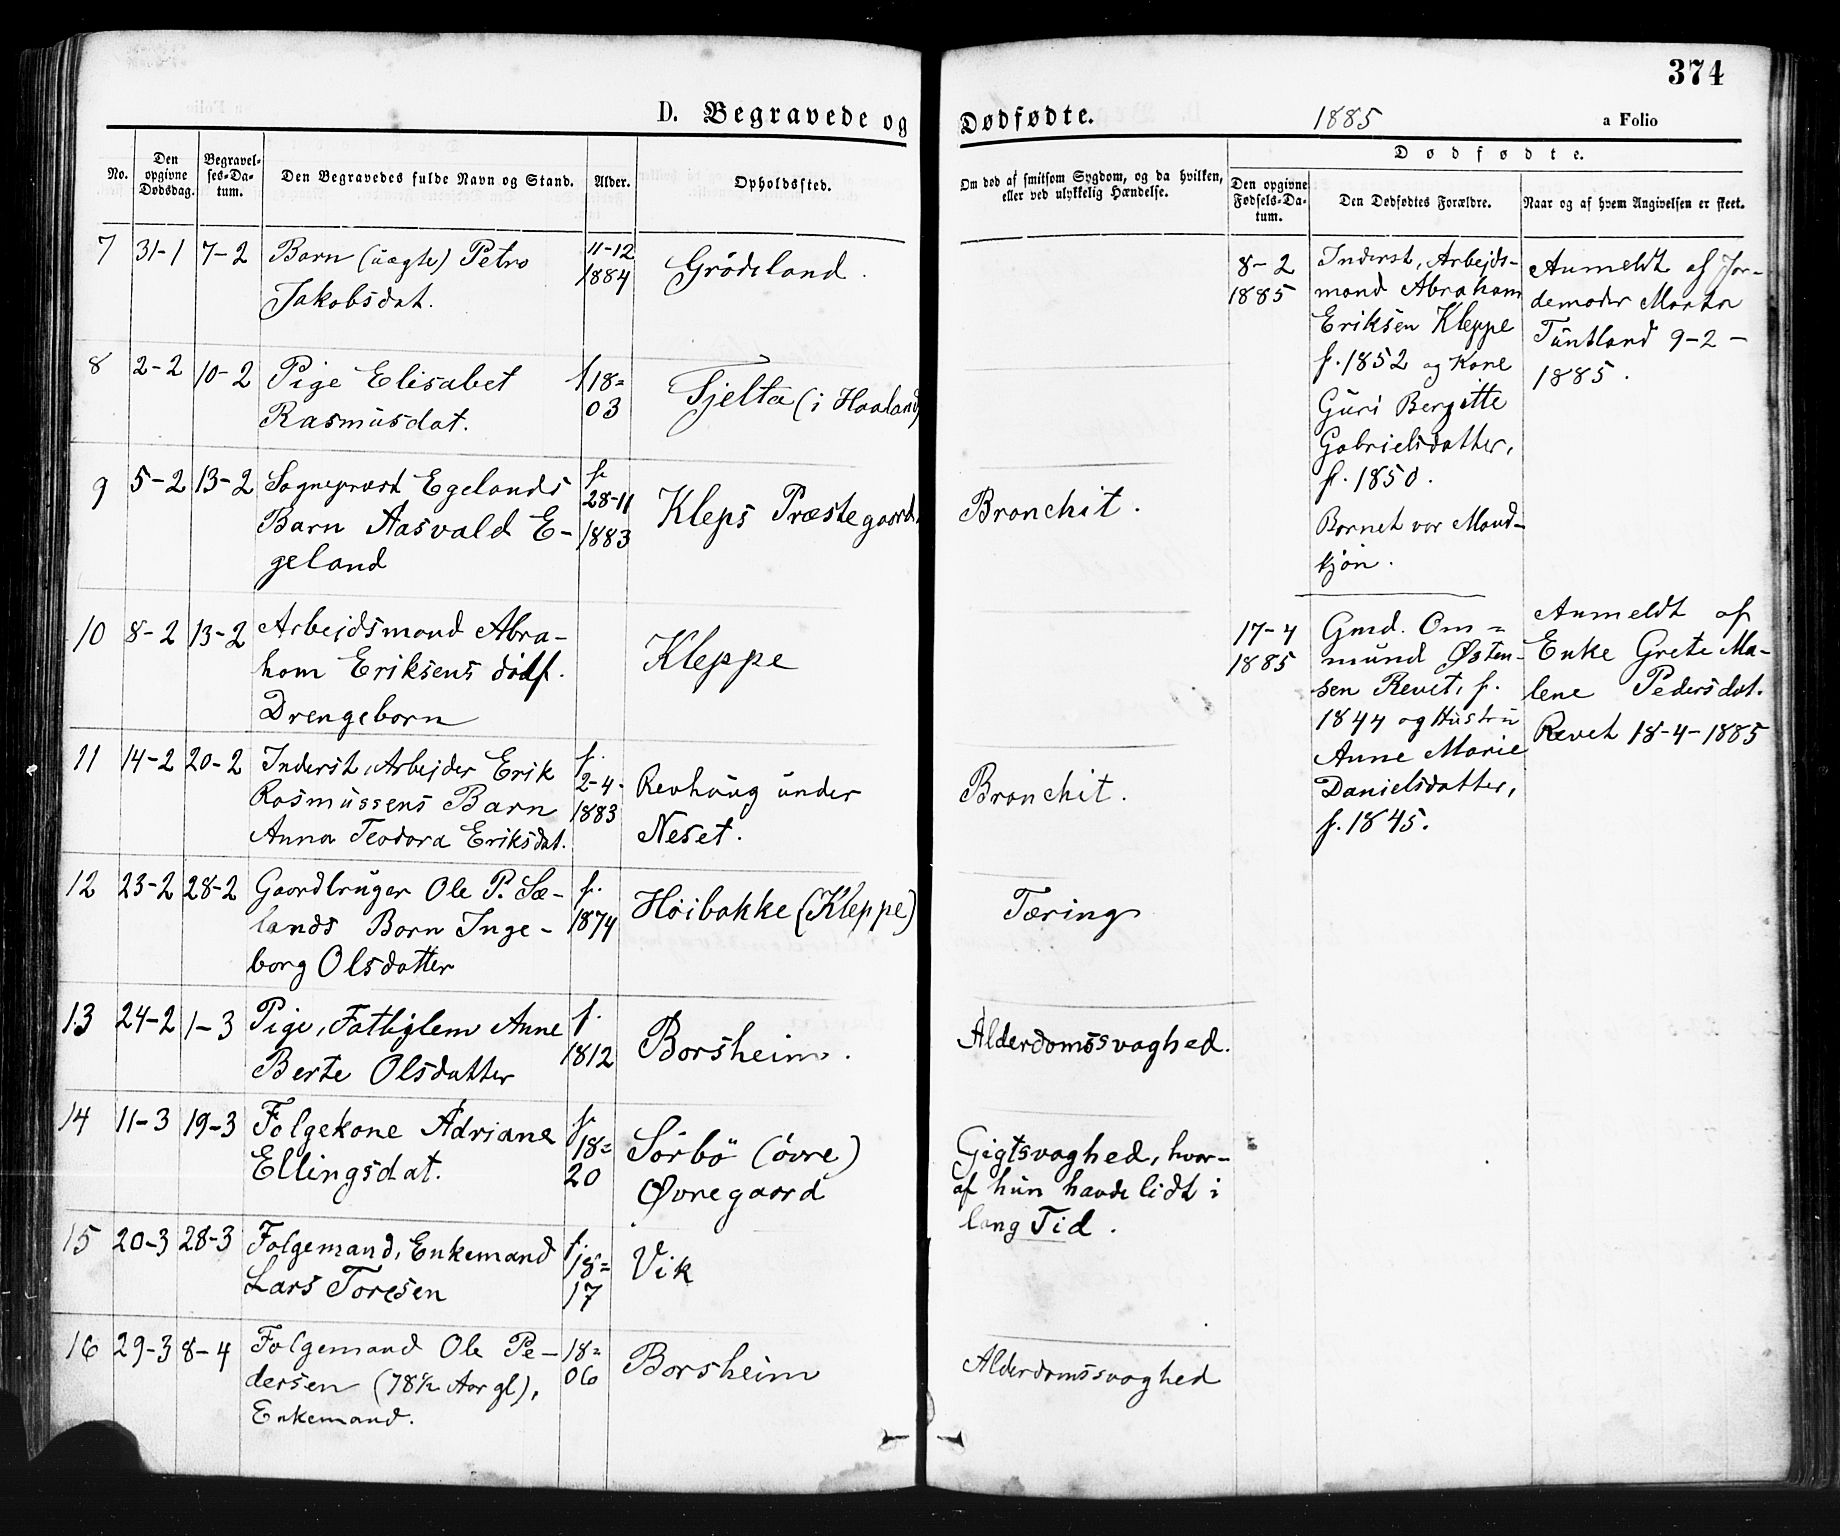 374
D. Begravede og Dødfødte. 1885 a Folio
No.
Den opgivne Dødsdag.
Begravelses-Datum.
Den Begravedes fulde Navn og Stand.
Alder.
Opholdssted.
Om død af smitsom Sygdom, og da hvilken,
eller ved ulykkelig Hændelse.
Dødfødte.
Den opgivne Fødsels-Datum.
Den Dødfødtes Forældre.
Naar og af hvem Angivelsen er skeet.
7 31-1 7-2 Barn (uægte) Petra 11-12 Grødeland.
Jakobsdat. 1884
8 2-2 10-2 Pige Elisabet f 18= Tjelta (i Haaland)
Rasmusdat. 03
9 5-2 13-2 Sogneprest Egelands f. 28-11 Kleps Præstegaard. Bronchit.
Barn Aasvald E- 1883
geland
10 8-2 13-2 Arbejdsmand Abra- Kleppe
ham Eriksens dødf.
Drengebarn
11 14-2 20-2 Inderst, Arbejder Erik f. 2-4- Revhaug under Bronchit.
Rasmussens Barn 1883 Neset.
Anna Teodora Eriksdat.
12 23-2 28-2 Gaardbruger Ole P. Sæ- f. Høibakke (Kleppe) Tæring
lands Barn Inge- 1874
borg Olsdatter
13 24-2 1-3 Pige, Fattiglem Anne f. Borsheim. Alderdomssvaghed.
Berte Olsdatter 1812
14 11-3 19-3 Folgekone Adriane f. 18= Sørbø (øvre) Gigtsvaghed, hvor-
Ellingsdat. 20 Øvregaard af hun havde lidt i
lang Tid.
15 20-3 28-3 Folgemand, Enkemand f. 18= Vik
Lars Toresen 17
16 29-3 8-4 Folgemand Ole Pe- 18= Borsheim Alderdomssvaghed
dersen (78½ Aar gl), 06
Enkemand.
8-2
1885
Inderst, Arbejds-
mand Abraham
Eriksen Kleppe
f. 1852 og Kone
Guri Bergitte
Gabrielsdatter,
f. 1850.
Barnet var Mand-
kjøn.
Anmeldt af Jor-
demoder Marta
Tuntland 9-2-
1885.
17-4
1885
Gmd. Om=
mund Østen-
sen Revet, f.
1844 og Hustru
Anne Marie
Danielsdatter,
f. 1845.
Anmeldt af
Enke Grete Ma-
lene Pedersdat.
Revet 18-4-1885